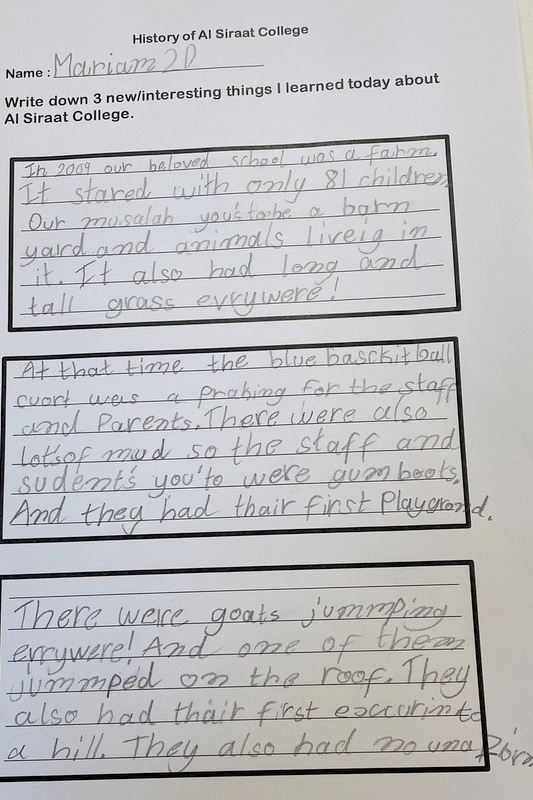 History of Al Siraat College
Name : Mariam 2D
Write down 3 new/interesting things I learned today about
Al Siraat College.
In 2009 our beloved school was a farm.
It stared with only 81 children
Our musalah you's to be a barn
yard and animals liveig in
it. It also had long and
tall grass evrywere!
At that time the blue basckit ball
cuort was a Praking for the staff
and Parents. There were also
lot's of mud so the staff and
sudent's you'to were gum boots.
And they had thair first Playgrond.
There were goats jummping
evrywere! And one of them
jummped on the roof. They
also had thair first exccurin to
a hill. They also had no unaform